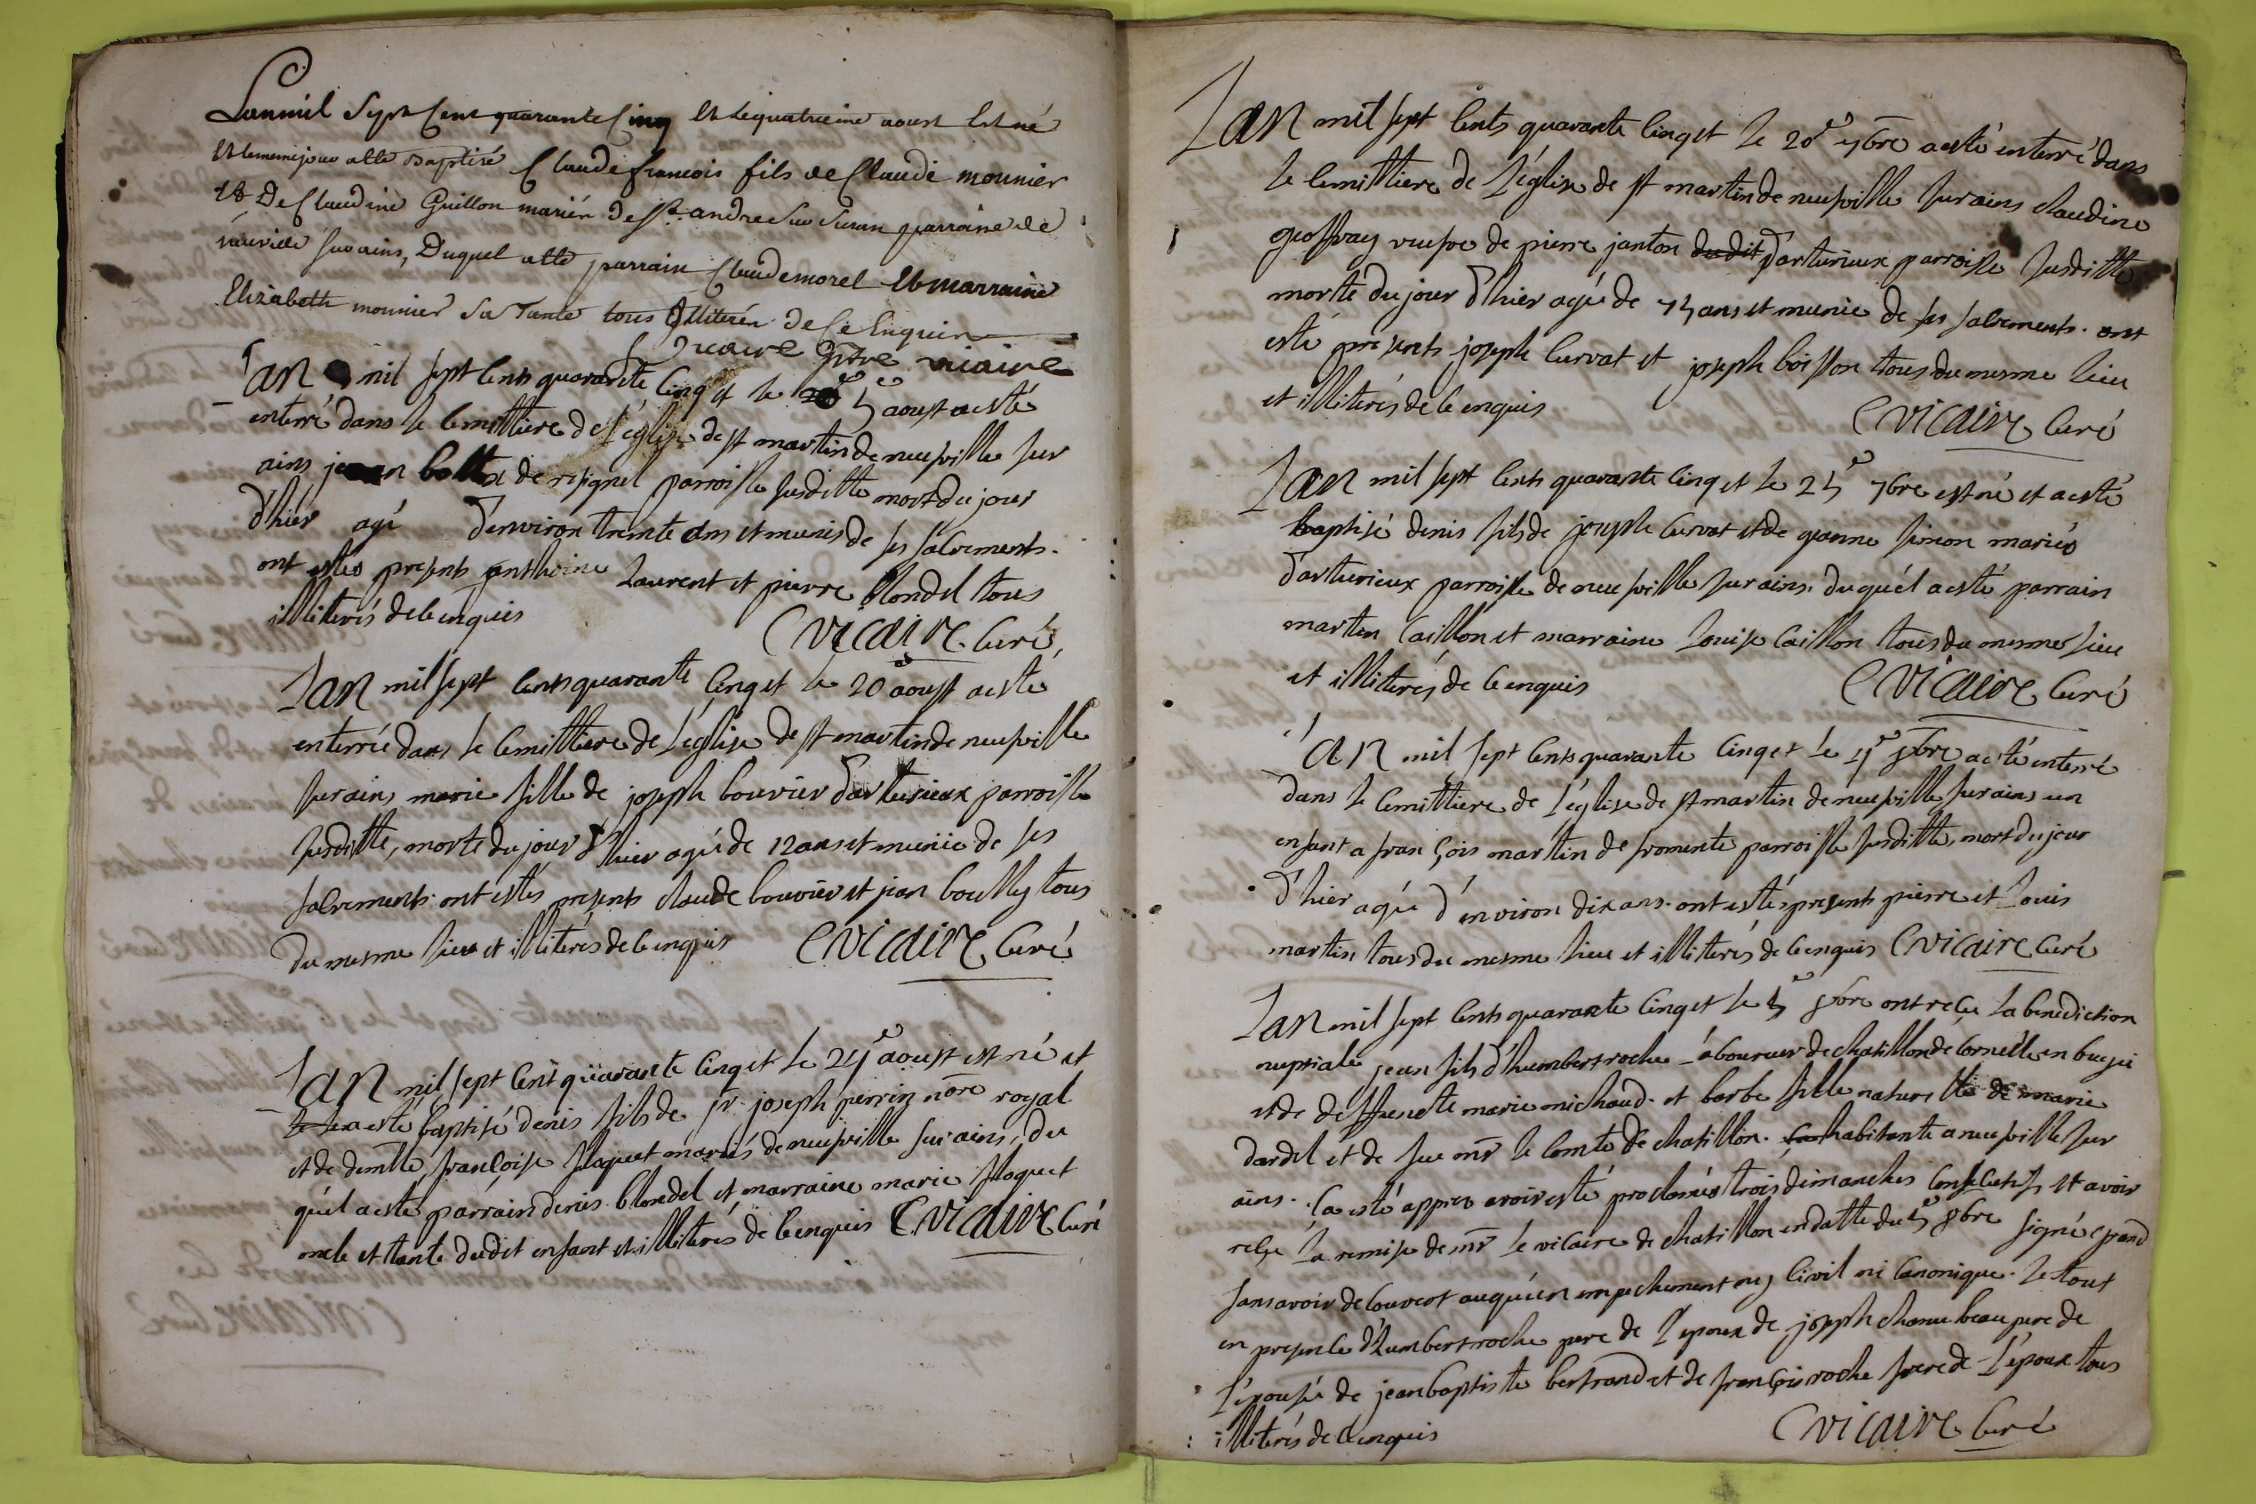 Lanmil Sept Cent quarante Cinq Et le quatrieme aoust Est né
Et lememe jour a Eté Baptisé Claude francois fils de Claude mounier
Et De Claudine Guillon mariés de st. andre sur Suran parroisse de
neuville sur ains, Duquel a Eté parrain Claude morel Et marraine
Elizabeth mounier Sa Tante tous Illiterés de Ce Enquis
vicaire
Lan mil sept cents quarante cinq et le 5e aoust a esté
enterré dans le cemittiere de l'église de st martin de neufville sur
ains jean de rignel parroisse susditte mort du jour
d'hier agé d'environ trente ans et munis de ses sacrements.
ont estés presents anthoine Laurent et pierre blondel tous
illiterés de ce enquis
C vicaire curé,
Lan mil sept cents quarante cinq et le 20 aoust a esté
enterrée dans le cemittiere de l'église de st martin de neufville
sur ains marie fille de joseph bouvier d'arturieux parroisse
susditte, morte du jour d'hier agée de 12 ans et munie de ses
sacrements. ont estés presents claude bouvier et jean boully tous
du mesme lieu et illiterés de ce enquis C vicaire curé
Lan mil sept cent quarante cinq et le 24e aoust est né et
a esté baptisé denis fils de sr. joseph perrin nore royal
et de demlle françoise ploquet mariés de neufville sur ains, du
quel a esté parrain denis blondel et marraine marie ploquet
oncle et tante dudit enfant et illiterés de ce enquis C vicaire curé
Lan mil sept cents quarante cinq et le 20e 7bre a esté enterré dans
le cemittiere de l'église de st martin de neufville sur ains claudine
geoffray veufve de pierre janton dudit d'arturieux parroisse susditte
morte du jour d'hier agée de 75 ans et munie de ses sacrements. ont
esté presents joseph curvat et joseph boisson tous du mesme lieu
et illiterés de ce enquis C vicaire curé
Lan mil sept cents quarante cinq et le 25e 7bre est né et a esté
baptisé denis fils de joseph curvat et de jeanne simon mariés
d'arturieux parroisse de neufville sur ains. duquel a esté parrain
martin caillon et marraine louise caillon tous du mesme lieu
et illiterés de ce enquis C vicaire curé
Lan mil sept cents quarante cinq et le 4e 8bre a esté enterré
dans le cemittiere de l'église de st martin de neufville sur ains un
enfant a françois martin de fromente parroisse susditte, mort du jour
d'hier agée d'environ dix ans. ont estés presents pierre et louis
martin tous du mesme lieu et illiterés de ce enquis C vicaire curé
Lan mil sept cents quarante cinq et le 5e 8bre ont reçu la benediction
nuptiale jean fils d'humbert roche laboureur de chatillon de Corneille en bugei
et de deffuncte marie michaud. et barbe fille naturelle de marie
dardel et de feu mr le comte de chatillon. habitante a neufville sur
ains. Ca esté apprés avoir esté proclamés trois dimanches consecutifs et avoir
reçu la remise de mr le vicaire de chatillon en datte du 5e 8bre signé
sans avoir decouvert auquun empechement ny Civil ni Canonique. le tout
en presence d'humbert roche pere de l'epoux de joseph beau pere de
l'epousée de jean baptiste bertrand et de françois roche frere de l'époux tous
illiterés de ce enquis C vicaire curé